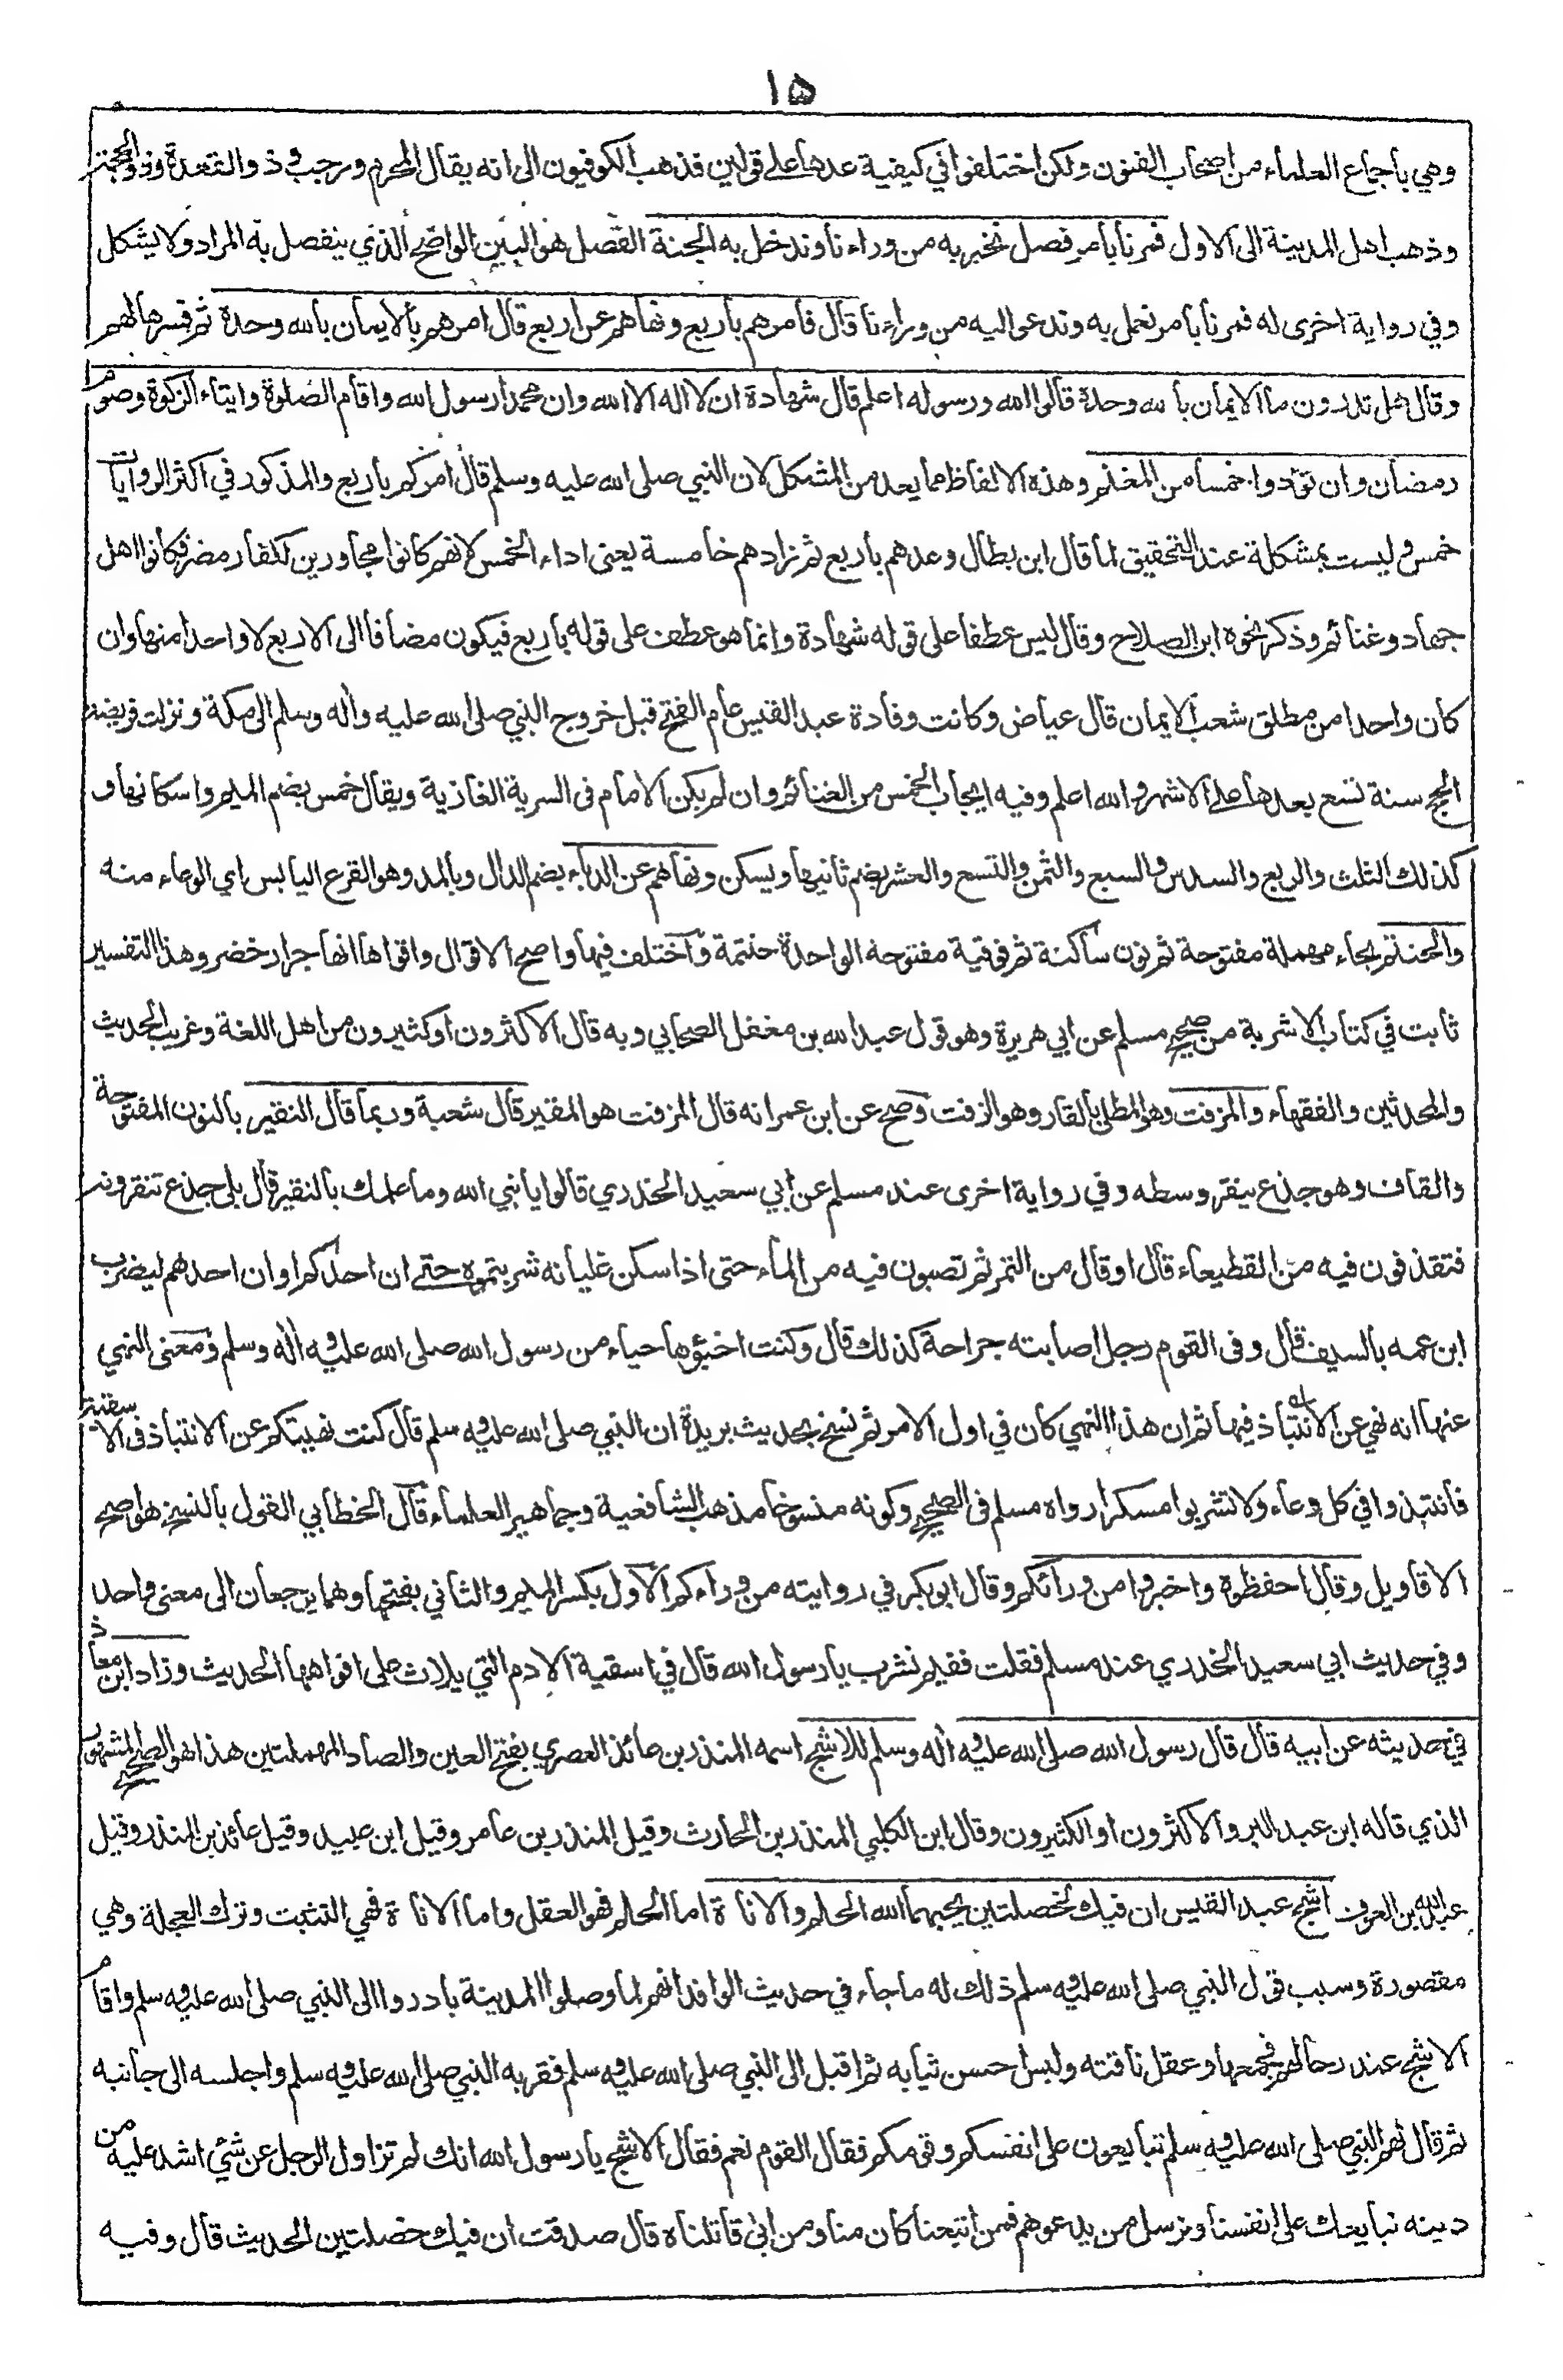 ١٥
وهي باجماع العلماء من اصحاب الفنون ولكن اختلفوا في كيفية عدها على قولين فذهب الكوفيون الى انه يقال المحرم ورجب و ذو القعدة وذو الحجة
وذهب اهل المدينة الى الاول فمرنا بامر فصل نخبر به من وراءنا وندخل به الجنة الفصل هو البين الواضح الذي ينفصل به المراد ولا يشكل
وفي رواية اخرى له فمرنا بامر نعمل به وندعو اليه من وراءنا قال فامرهم باربع ونهاهم عن اربع قال امرهم بالايمان بالله وحدة ثم فسرها لهم
وقال هل تدرون ما الايمان بالله وحدة قالوا الله ورسوله اعلم قال شهادة ان لا اله الا الله وان محمدا رسول الله واقام الصلوة وايتاء الزكوة وصوم
رمضان وان تؤدوا خمسا من المغنم وهذه الالفاظ مما يعد من المشكل لان النبي صلى الله عليه وسلم قال امركم باربع والمذكور في اكثر الروايات
خمس و ليست بمشكلة عند التحقيق لما قال ابن بطال وعدهم باربع ثم زادهم خامسة يعنى اداء الخمس لانهم كانوا مجاورين لكفار مضر فكانوا اهل
جهاد وغنائم وذكر نحوه ابن الصلاح وقال ليس عطفا على قوله شهادة وانما هو عطف على قوله باربع فيكون مضافا الى الاربع لا واحدا منها وان
كان واحدا من مطلق شعب الايمان قال عياض وكانت وفادة عبد القيس عام الفتح قبل خروج النبي صلى الله عليه واله وسلم الى مكة ونزلت فريضة
الحج سنة تسع بعدها على الاشهر والله اعلم وفيه ايجاب الخمس من الغنائم وان لم يكن الامام في السرية الغازية ويقال خمس بضم الميم واسكانها و
كذلك الثلث والربع والسدس والسبع والثمن والتسع والعشر بضم ثانيها ويسكن ونهاهم عن الدباء بضم الدال وبالمد وهو القرع اليابس اي الوعاء منه
والحنتم بحاء مهملة مفتوحة ثم نون ساكنة ثم فوقية مفتوحة الواحدة حنتمة واختلف فيها واصح الاقوال واقواها انها جرار خضر وهذا التفسير
ثابت في كتاب الاشربة من صحيح مسلم عن ابي هريرة وهو قول عبد الله بن مغفل الصحابي وبه قال الاكثرون او كثيرون من اهل اللغة وغريب الحديث
والمحدثين والفقهاء والمزفت وهو المطلي بالقار وهو الزفت وصح عن ابن عمر انه قال المزفت هو المقير قال شعبة وربما قال النقير بالنون المفتوحة
والقاف وهو جذع ينقر وسطه وفي رواية اخرى عند مسلم عن ابي سعيد الخدري قالوا يا نبي الله وما علمك بالنقير قال بلى جذع تنقرونه
فتقذفون فيه من القطيعاء قال او قال من التمر ثم تصبون فيه من الماء حتى اذا سكن غليانه شربتموه حتى ان احدكم او ان احدهم ليضرب
ابن عمه بالسيف قال وفى القوم رجل اصابته جراحة كذلك قال وكنت اخبؤها حياء من رسول الله صلى الله عليه و اله وسلم ومعنى النهي
عنها انه نهي عن الانتباذ فيها ثم ان هذا النهي كان في اول الامر ثم نسخ بحديث بريدة ان النبي صلى الله عليه و سلم قال كنت نهيتكم عن الانتباذ فى الاسقية
فانتبذوا في كل وعاء ولا تشربوا مسكرا رواه مسلم فى الصحيح وكونه منسوخا مذهب الشافعية وجماهير العلماء قال الخطابي القول بالنسخ هو اصح
الاقاويل وقال احفظوه واخبروا من ورائكم وقال ابو بكر في روايته من وراءكم الاول بكسر الميم والثاني بفتحها وهما يرجعان الى معنى واحد
وفي حديث ابي سعيد الخدري عند مسلم فقلت ففيم نشرب يا رسول الله قال في اسقية الادم التي يلاث على افواهها الحديث وزاد ابن معاذ
في حديثه عن ابيه قال قال رسول الله صلى الله عليه و اله وسلم للاشج اسمه المنذر بن عائذ العصري بفتح العين والصاد المهملتين هذا هو الصحيح المشهور
الذي قاله ابن عبد البر والاكثرون او الكثيرون وقال ابن الكلبي المنذر بن الحارث وقيل المنذر بن عامر وقيل ابن عبيد وقيل عائذ بن المنذر وقيل
عبد الله بن العوف اشج عبد القيس ان فيك لخصلتين يحبهما الله الحلم والاناة اما الحلم فهو العقل واما الاناة فهي التثبت وترك العجلة وهي
مقصورة وسبب قول النبي صلى الله عليه و سلم ذلك له ما جاء في حديث الوافد انهم لما وصلوا المدينة بادروا الى النبي صلى الله عليه و سلم واقام
الاشج عند رحالهم فجمعها وعقل ناقته ولبس احسن ثيابه ثم اقبل الى النبي صلى الله عليه و سلم فقربه النبي صلى الله عليه و سلم واجلسه الى جانبه
ثم قال لهم النبي صلى الله عليه و سلم تبايعون على انفسكم وقومكم فقال القوم نعم فقال الاشج يا رسول الله انك لم تزاول الرجل عن شئ اشد عليه من
دينه نبايعك على انفسنا ونرسل من يدعوهم فمن اتبعنا كان منا ومن ابى قاتلناه قال صدقت ان فيك خصلتين الحديث قال وفيه